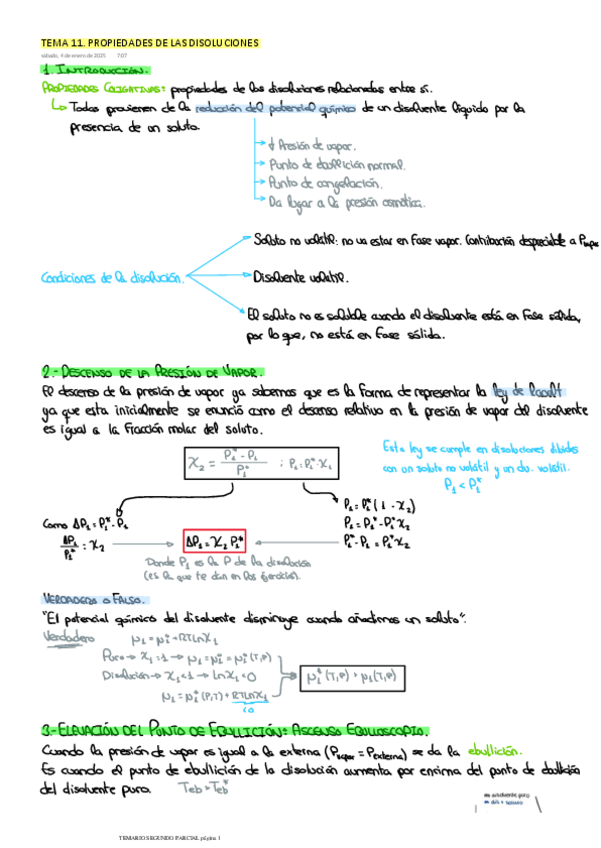 TEMA 11. PROPIEDADES DE LAS DISOLUCIONES
sábado, 4 de enero de 2025 7:07
1. INTRODUCCIÓN.
PROPIEDADES COLIGATIVAS: propiedades de las disoluciones relacionadas entre sí.
↳ Todas provienen de la reducción del potencial químico de un disolvente líquido por la
presencia de un soluto.
↓ Presión de vapor.
Punto de ebullición normal.
Punto de congelación.
Da lugar a la presión osmótica.
Soluto no volátil: no va estar en fase vapor. Contribución despreciable a Pvapor
Condiciones de la disolución.
Disolvente volátil.
El soluto no es soluble cuando el disolvente está en fase sólida,
por lo que, no está en fase sólida.
2.- DESCENSO DE LA PRESIÓN DE VAPOR.
El descenso de la presión de vapor ya sabemos que es la forma de representar la ley de Raoult
ya que esta inicialmente se enunció como el descenso relativo en la presión de vapor del disolvente
es igual a la fracción molar del soluto.
χ₂ = (P₁* - P₁) / P₁* ; P₁ = P₁*·χ₁
Esta ley se cumple en disoluciones diluidas
con un soluto no volátil y un dis. volátil.
P₁ < P₁*
Como ΔP₁ = P₁* - P₁
ΔP₁ / P₁* = χ₂
ΔP₁ = χ₂ P₁*
P₁ = P₁* (1 - χ₂)
P₁ = P₁* - P₁* χ₂
P₁* - P₁ = P₁* χ₂
Donde P₁ es la P de la disolución
(es la que te dan en los ejercicios).
VERDADERO O FALSO.
"El potencial químico del disolvente disminuye cuando añadimos un soluto":
Verdadero μ₁ = μ₁* + RTlnχ₁
Puro → χ₁ = 1 → μ₁ = μ₁* = μ₁* (T,P)
Disolución → χ₁ < 1 → lnχ₁ < 0
μ₁ = μ₁* (P,T) + RTlnχ₁
<0
μ₁* (T,P) > μ₁ (T,P)
3.- ELEVACIÓN DEL PUNTO DE EBULLICIÓN: ASCENSO EBULLOSCOPIO.
Cuando la presión de vapor es igual a la externa (Pvapor = Pexterna) se da la ebullición.
Es cuando el punto de ebullición de la disolución aumenta por encima del punto de ebullición
del disolvente puro. Teb > Teb*
TEMARIO SEGUNDO PARCIAL página 1